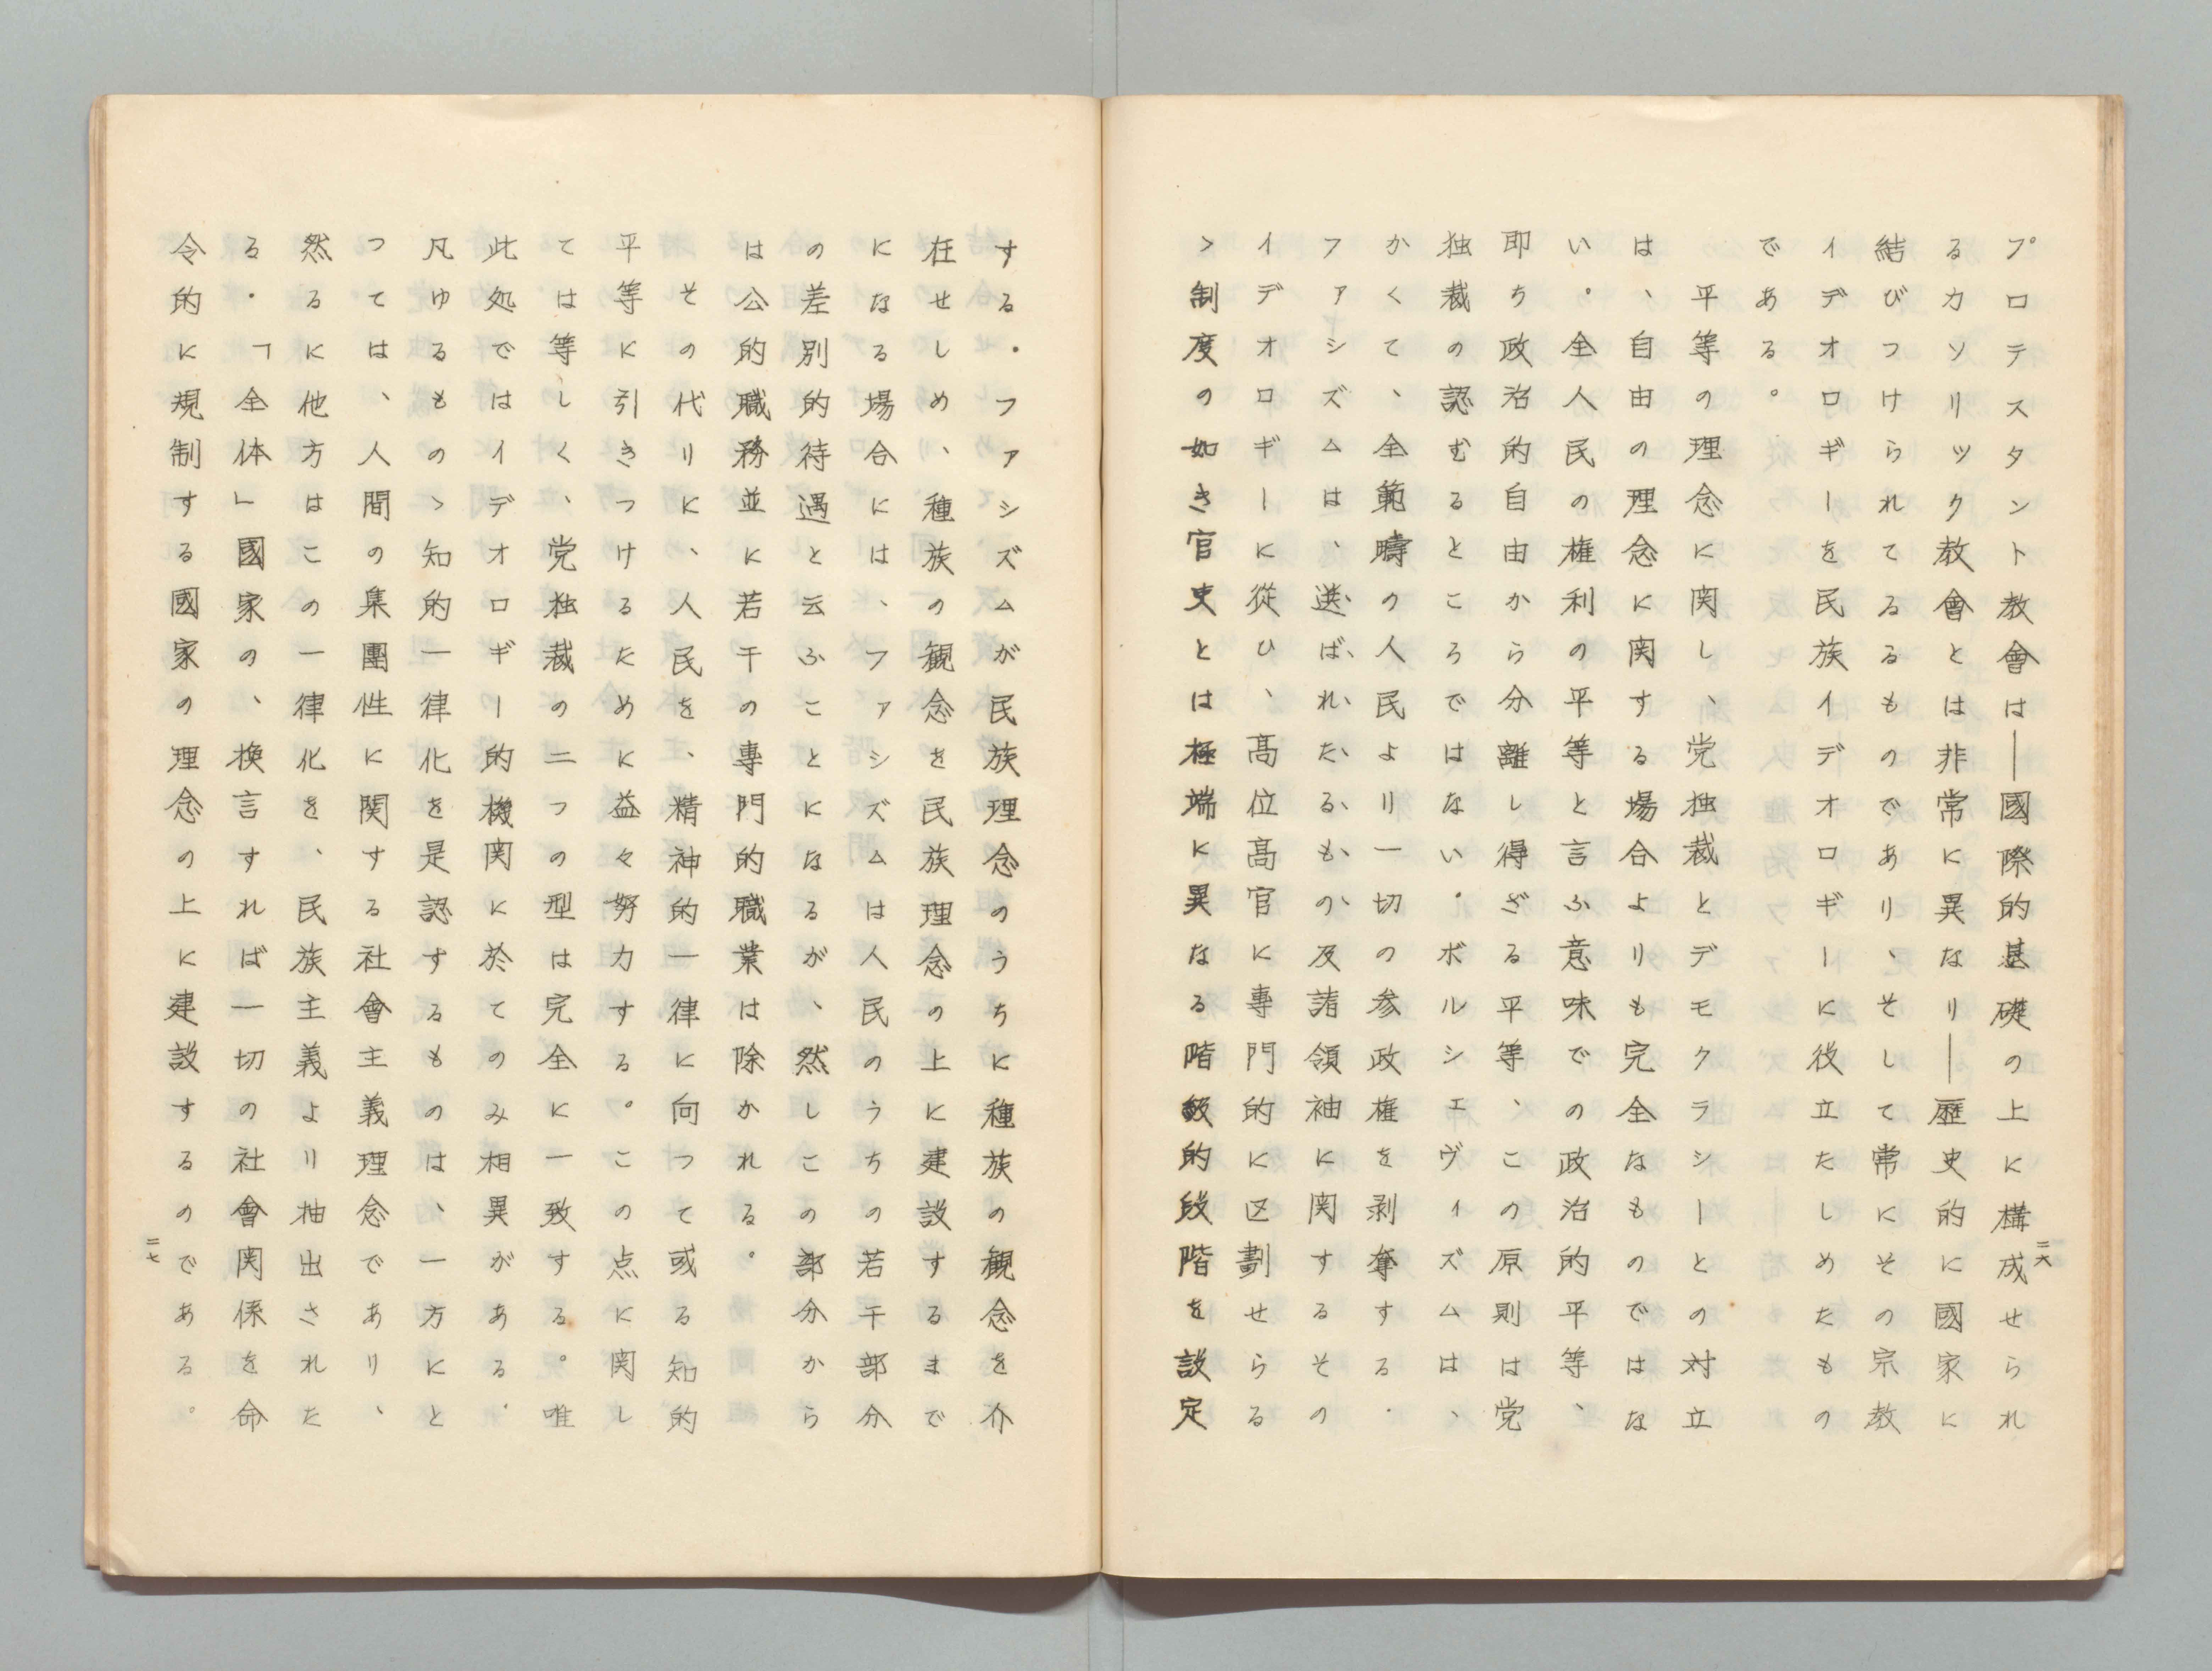 プロテスタント教會は―國際的基礎の上に構成せられ
るカソリック教會とは非常に異なり―歴史的に國家に
結びつけられてるるものであり、そして常にその宗教
イデオロギーを民族イデオロギーに役立たしめたもの
である。
平等の理念に関し、党独裁とデモクラシーとの対立
は、自由の理念に関する場合よりも完全なものではな
い。全人民の権利の平等と言ふ意味での政治的平等、
即ち政治的自由から分離し得ざる平等、この原則は党
独裁の認むるところではない．ボルシエヴィズムは、
かくて、全範疇の人民より一切の参政権を剥奪する．
ファシズムは、選ばれたるもの及諸領袖に関するその
イデオロギーに從ひ、高位高官に專門的に区劃せらる
ゝ制度の如き官吏とは極端に異なる階級的段階を設定
二六
する．ファシズムが民族理念のうちに種族の観念を介
在せしめ、種族の観念を民族理念の上に建設するまで
になる場合には、ファシズムは人民のうちの若干部分
の差別的待遇と云ふことになるが、然しこの部分から
は公的職務並に若干の專門的職業は除かれる。
その代りに、人民を、精神的一律に向つて或る知的
平等に引きつけるために益々努力する。この点に関し
ては等しく、党独裁の二つの型は完全に一致する。唯
此処ではイデオロギー的機関に於てのみ相異がある．
凡ゆるものゝ知的一律化を是認するものは、一方にと
つては、人間の集團性に関する社會主義理念であり、
然るに他方はこの一律化を、民族主義より抽出された
る．「全体」國家の、換言すれば一切の社會関係を命
令的に規制する國家の理念の上に建設するのである。
二七